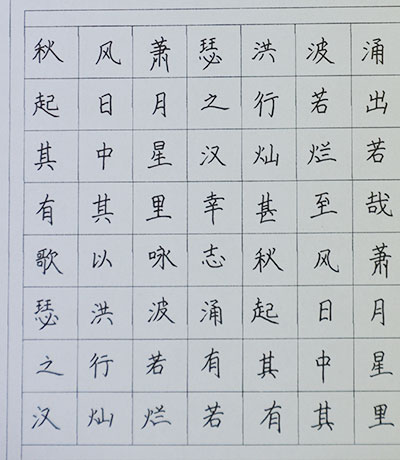 秋风萧瑟洪波涌
起日月之行若出
其中星汉灿烂若
有其里幸甚至哉
歌以咏志秋风萧
瑟洪波涌起日月
之行若有其中星
汉灿烂若有其里